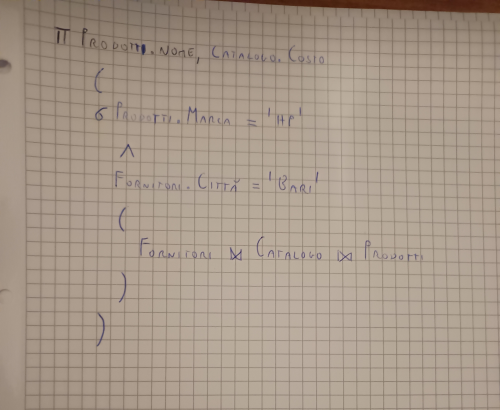 π PRODOTTI.NOME, CATALOGO.COSTO
(
σ PRODOTTI.MARCA = 'HP'
∧
FORNITORI.CITTÀ = 'BARI'
(
FORNITORI ⋈ CATALOGO ⋈ PRODOTTI
)
)